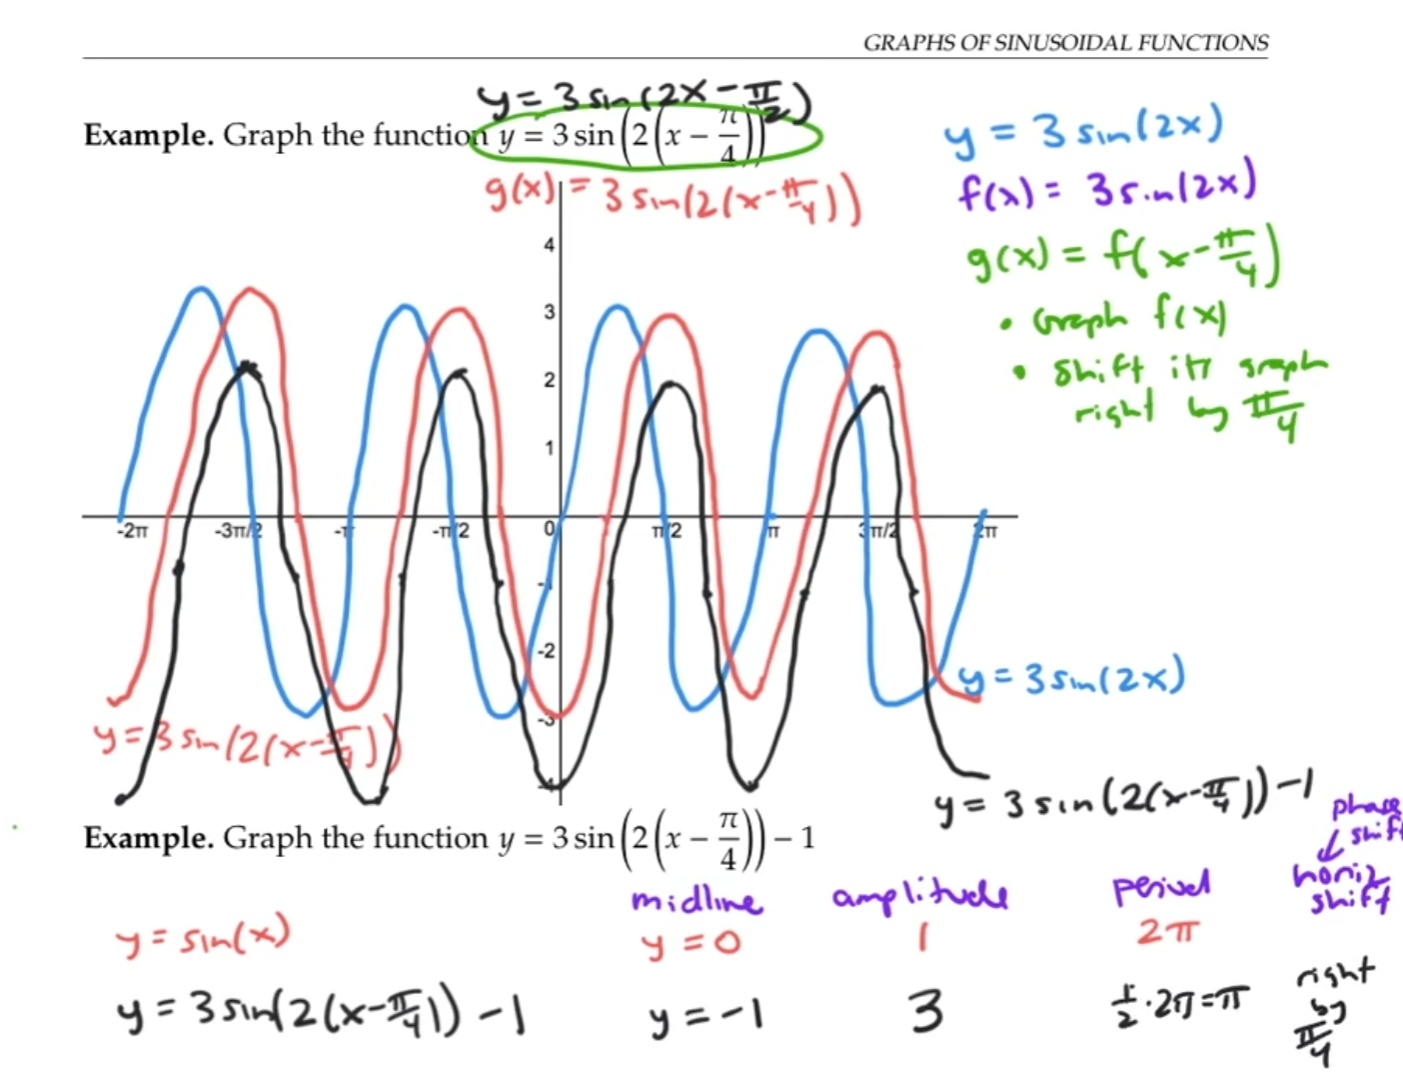 GRAPHS OF SINUSOIDAL FUNCTIONS
y = 3 sin(2x - π/2)
Example. Graph the function y = 3 sin(2(x - π/4))
g(x) = 3 sin(2(x - π/4))
y = 3 sin(2x)
f(x) = 3 sin(2x)
g(x) = f(x - π/4)
• Graph f(x)
• shift its graph
right by π/4
4
3
2
1
-2π -3π/2 -π -π/2 0 π/2 π 3π/2 2π
-1
-2
-3
-4
y = 3 sin(2x)
y = 3 sin(2(x - π/4))
y = 3 sin(2(x - π/4)) - 1
Example. Graph the function y = 3 sin(2(x - π/4)) - 1
phase
shift
midline amplitude period horiz
shift
y = sin(x) y = 0 1 2π
y = 3 sin(2(x - π/4)) - 1 y = -1 3 1/2 · 2π = π right
by
π/4